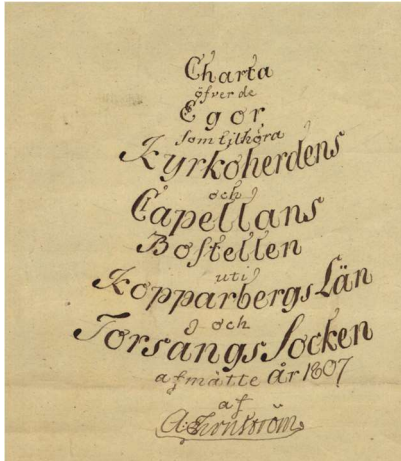 Charta
öfver de
Egor,
som tilhöra
Kyrkoherdens
och
Capellans
Bostellen
uti
Kopparbergs Län
och
Torsangs Socken
afmätte År 1807
af